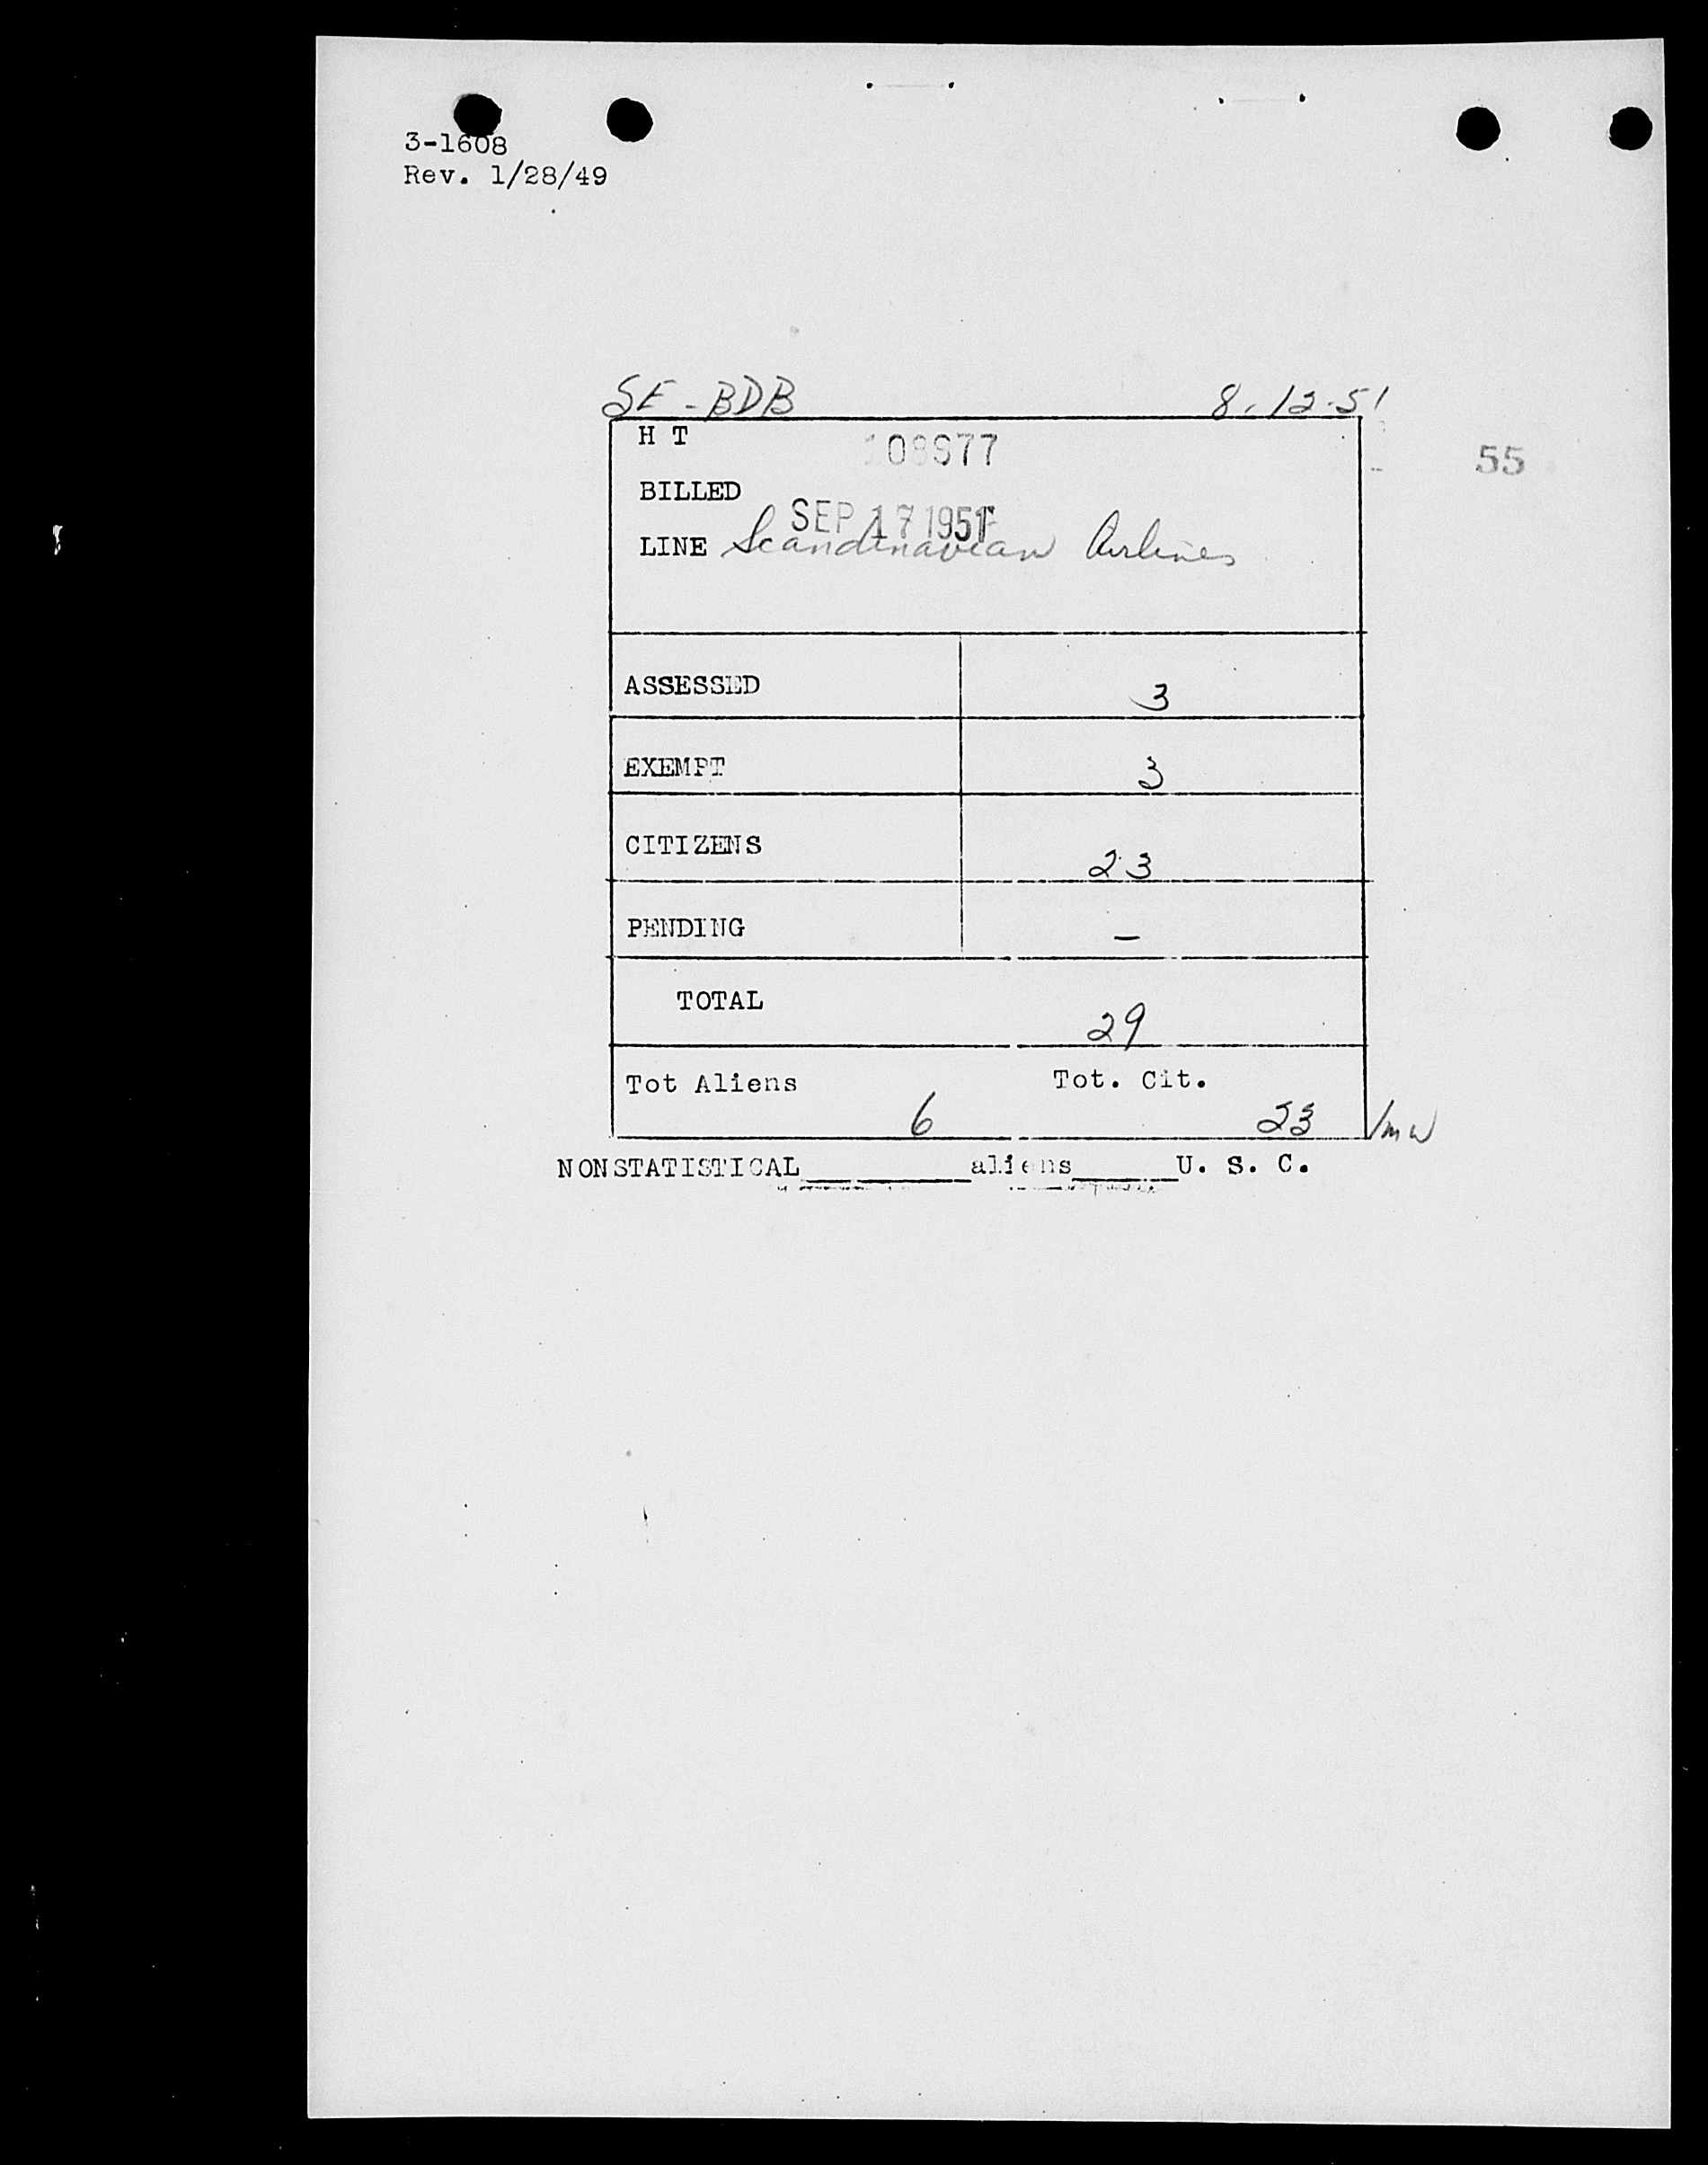 3-1608
Rev. 1/28/49
SE-BDB 8.12.51
H T
55
BILLED
SEP 17 1951
LINE Scandinavian Airlines
ASSESSED 3
EXEMPT 3
CITIZENS 23
PENDING –
TOTAL 29
Tot Aliens 6 Tot. Cit. 23
NONSTATISTICAL______aliens______U. S. C.